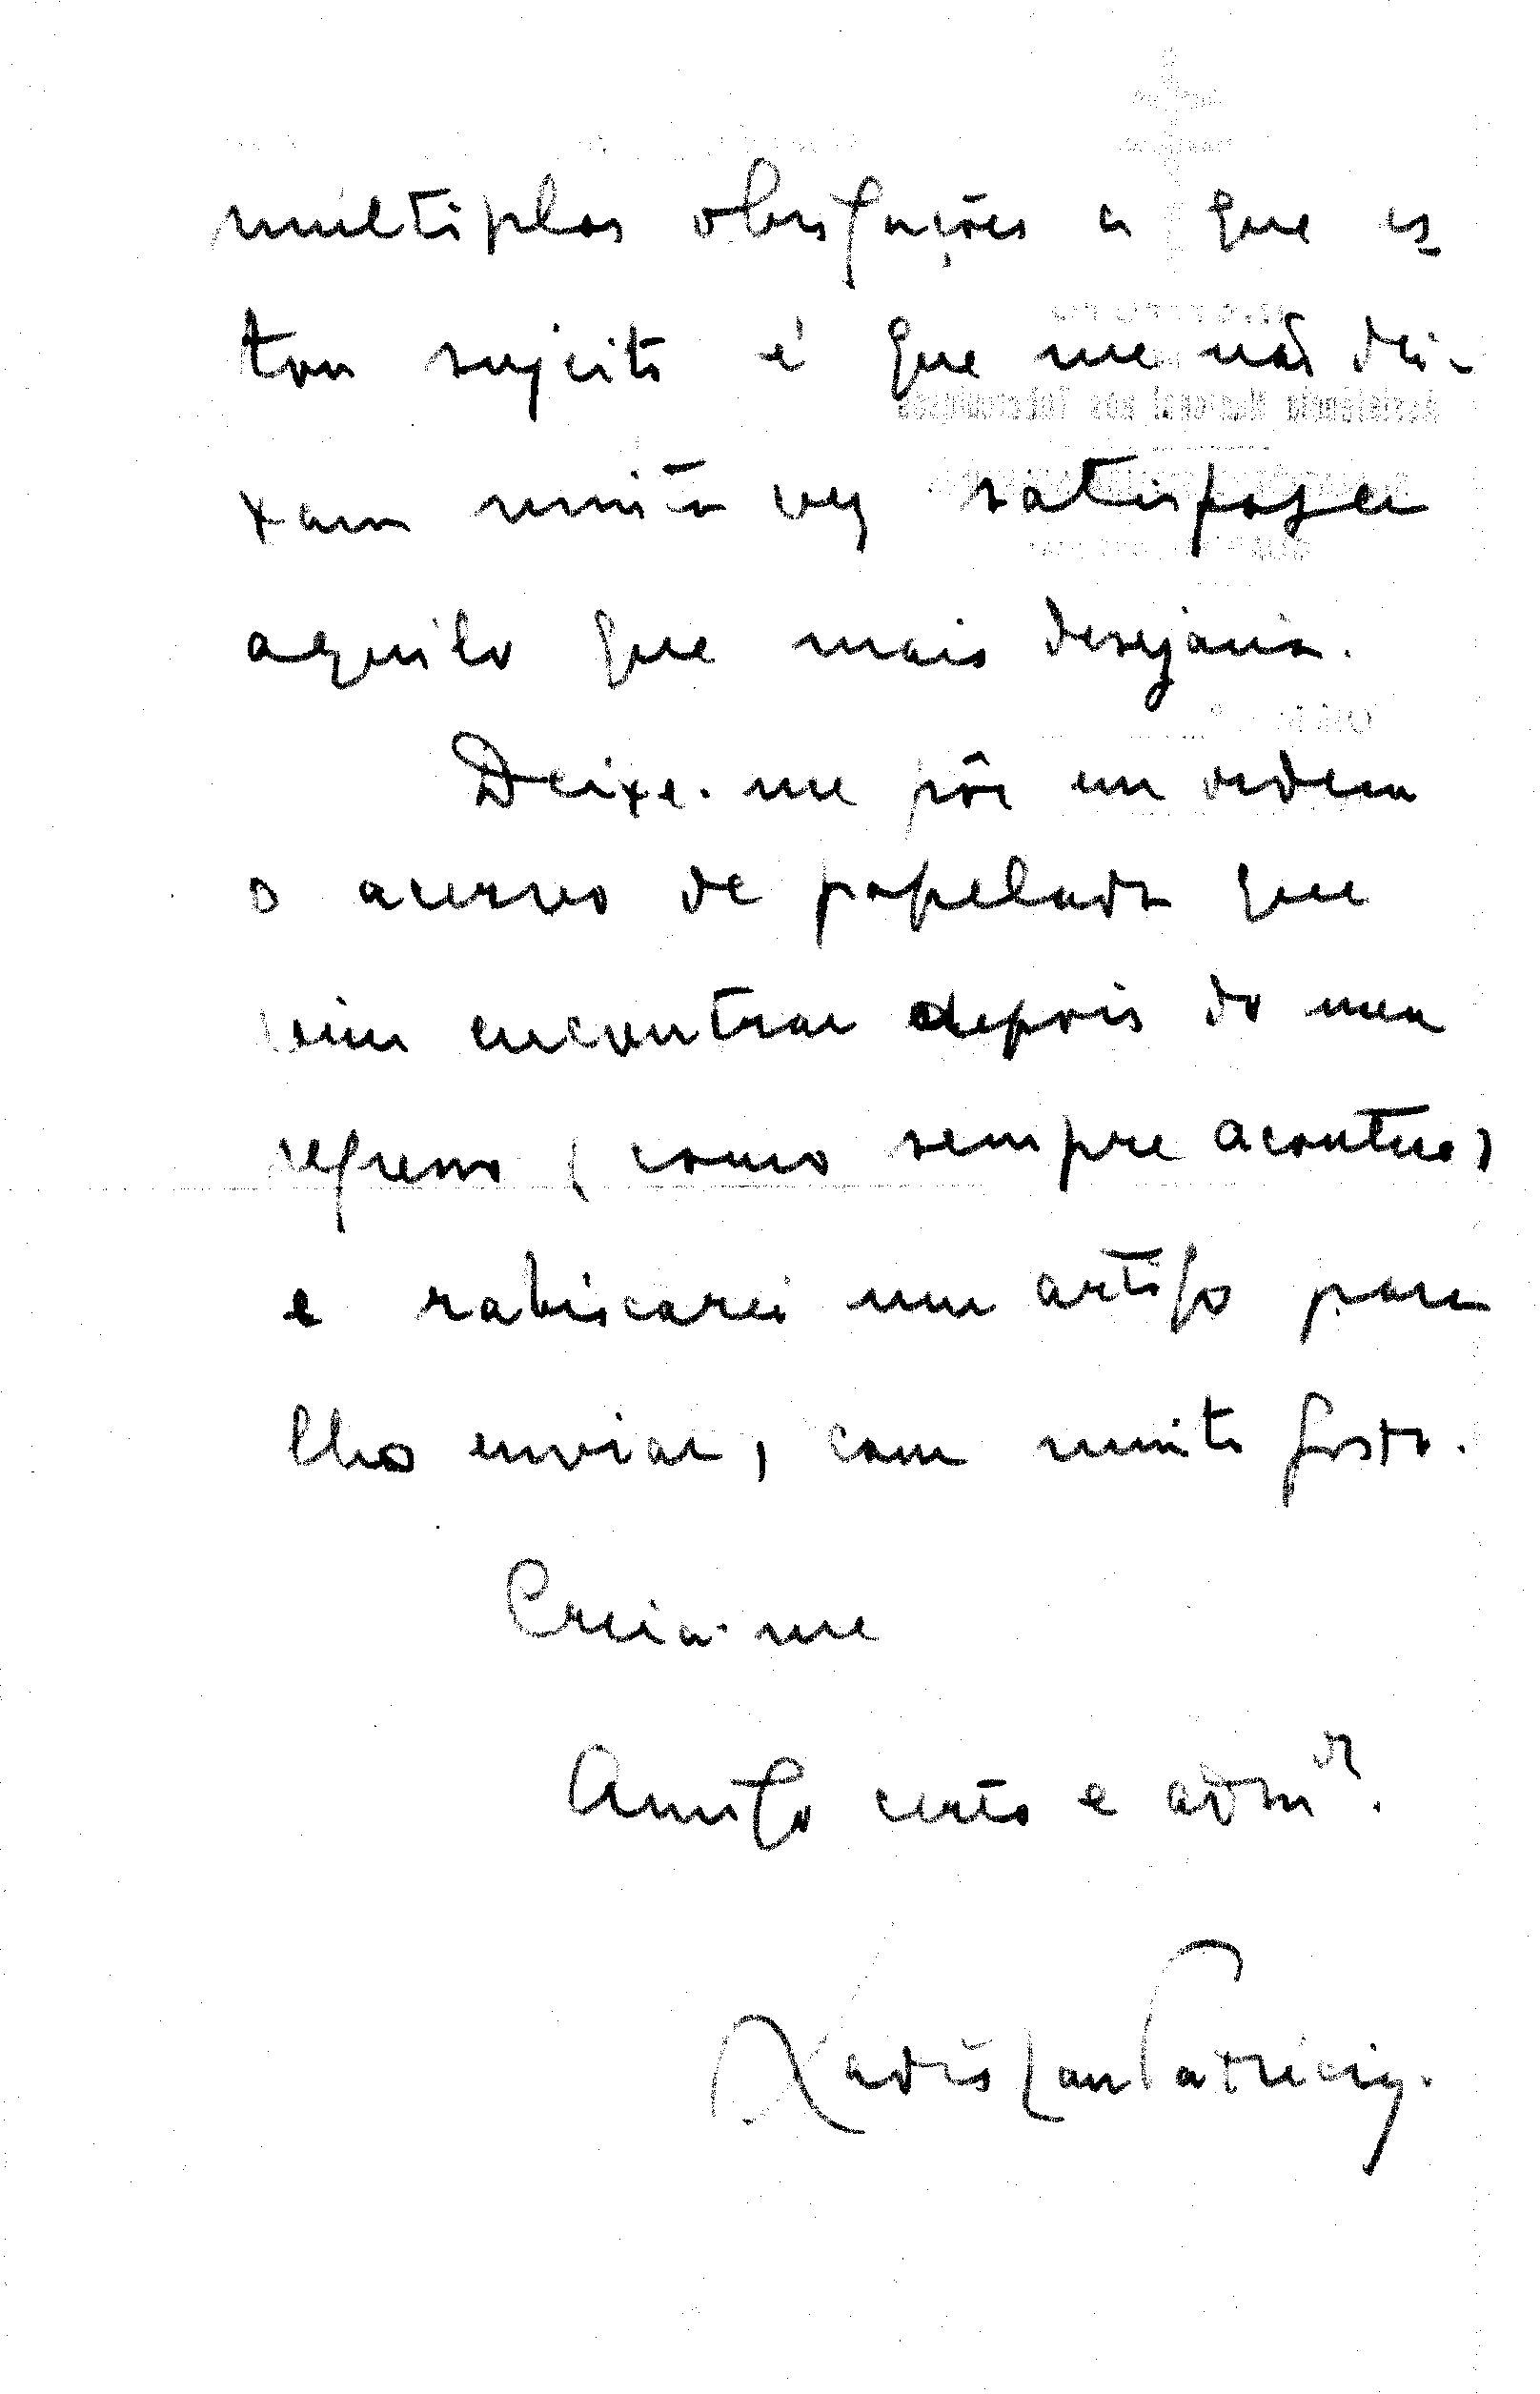 múltiplas obrigações a que es
tou sujeito é que me não dei-
xam muita vez satisfazer
aquilo que mais desejaria.
Deixe-me pôr em ordem
o acervo de papelada que
vim encontrar depois do meu
regresso (como sempre acontece)
e rabiscarei um artigo para
lho enviar, com muito gosto.
Creia-me
Amigo certo e admor.
Ladislau Patrício.